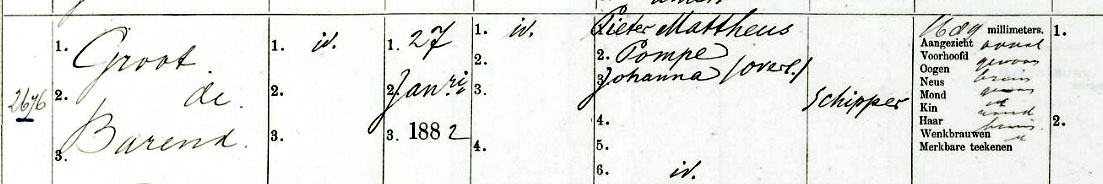 2676
1. Groot
2. de
3. Barend.
1. id.
2.
3.
1. 27
2. Jan ri
3. 1882
1. id.
2.
3.
4.
Pieter Mattheus
2. Pompe
3. Johanna (overl.)
4.
5.
6. id.
Schipper
1689 millimeters.
Aangezicht ovaal
Voorhoofd gewoon
Oogen bruin
Neus gewoon
Mond id
Kin rond
Haar bruin
Wenkbrauwen id
Merkbare teekenen
1.
2.